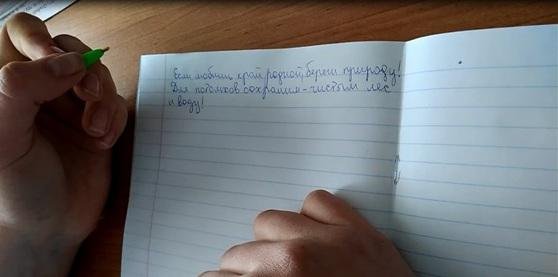 Если любишь край родной, береги природу!
Для потомков сохраним - чистым лес
и воду!